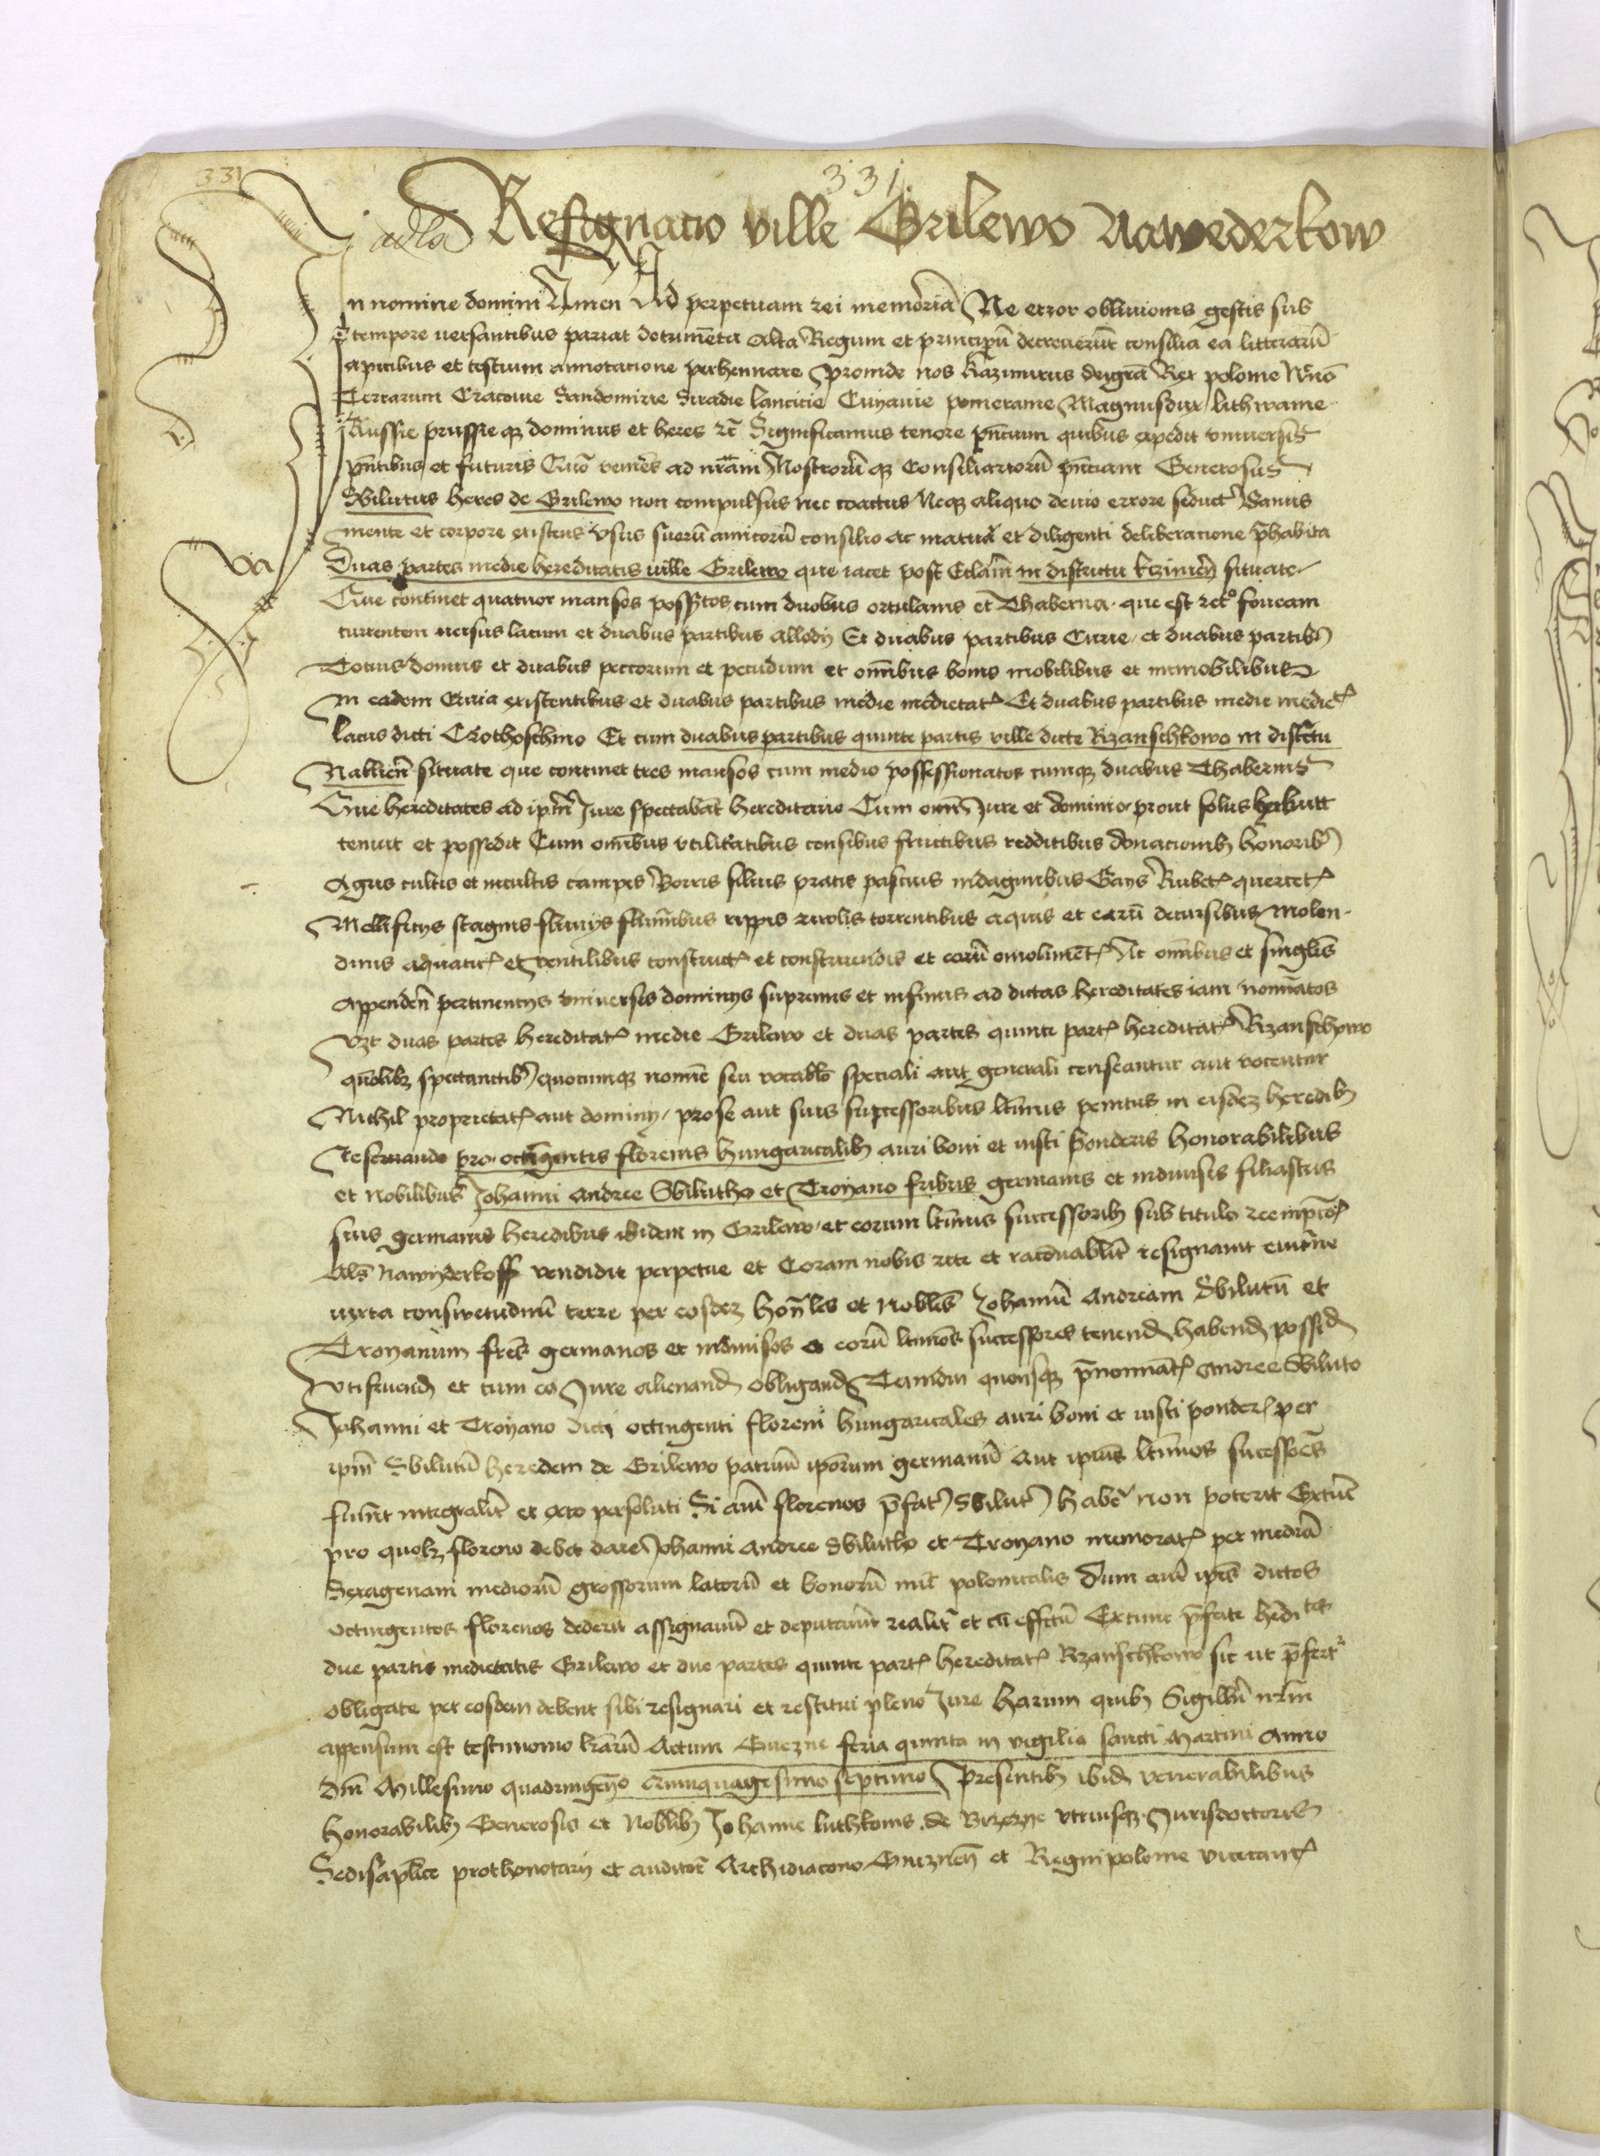 331
331
Resignacio ville Grilewo Nawederkow
In nomine domini Amen Ad perpetuam rei memoriā Ne error oblivionis gestis sub
tempore versantibus pariat detrimēta Alta Regum et principū decreverūt consilia ea litterarū
apicibus et testium annotacione perhennare Proinde nos Kazimirus dei grā Rex polonie Nēnō
Terrarum Cracovie Sandomirie Siradie lancicie Cuyavie pomeranie Magnusdux lithwanie
Russie prussie qȝ dominus et heres etc̄ Significamus tenore pn̄cium quibus expedit universis
pn̄tibus et futuris Quō veniēs ad nrām Nostrorū qȝ Consiliariorū pn̄ciam Generosus
Sbilutus heres de Grilewo non compulsus nec coactus Neqȝ aliquo devio errore seduct9 Sanus
mente et corpore existens Usus suorū amicorū consilio ac matura et diligenti deliberacione p̄habita
Duas partes medie hereditatis ville Grilewo que iacet post Eclām in districtu kczinen̄ situate
Que continet quatuor mansos possn̄tos cum duobus ortulanis et Thaberna que est retº foveam
currentem versus lacum et duabus partibus allodii Et duabus partibus Curie et duabus partibȝ
Totius domus et duabus peccorum et pecudum et om̄ibus bonis mobilibus et inmobilibus
In eadem Curia existentibus et duabus partibus medie medietatꝭ Et duabus partibus medie medietꝭ
lacus dicti Crothoschino Et cum duabus partibus quinte partis ville dicte Rzanschkowo in districtu
Naklien̄ situate que continet tres mansos cum medio possessionatos cumqȝ duabus Thabernis
Que hereditates ad ipm̄ Jure spectabāt hereditario Cum omī Jure et dominio prout solus
tenuit et possedit Cum om̄ibus utilitatibus censibus fructibus redditibus donacionibȝ honoribȝ
Agris cultis et incultis campis Borris silvis pratis pascuis indaginibus Gays Rubetꝭ quercetꝭ
Mellificiis stagnis fluviis fluminibus rippis rivolis torrentibus aquis et earū decursibus Molen-
dinis aquaticꝭ et ventilibus constructꝭ et construendis et eorū emolimētꝭ Ac om̄ibus et singlis
Appenden̄ pertinenciis universis dominiis supremis et infimis ad dictas hereditates iam nominatos
Uzt duas partes hereditatꝭ medie Grilewo et duas partes quinte partꝭ hereditatꝭ Rzanschowo
quolibȝ spectantibȝ quocumqȝ nomīe seu vocablo speciali aut generali censeantur aut vocentur
Nichil proprietatꝭ aut dominii pro se aut suis successoribus ltīmis penitus in eisdeȝ heredibȝ
Reservando pro octīgentis florenis hungaricalibȝ auri boni et iusti ponderis honorabilibus
et Nobilibus Johanni Andree Sbilutho et Troyano frībus germanis et indivisis filiastris
suis germanis heredibus ibidem in Grilewo et eorum ltīmis successoribȝ sub titulo reempcōꝭ
als Nawyderkoff vendidit perpetue et Coram nobis rite et racōnabilit̄ resignavit
iuxta consuetudinē terre per eosdeȝ honles et Nobiles Johannē Andream Sbilutū et
Troyanum frēs germanos et indivisos et eorū ltīmos successores tenend habend possid
Utifruend et cum eo Jure alienand obligand Tamdiu quousqȝ p̄nominatꝭ Andree Sbiluto
Johanni et Troyano dicti octingenti floreni hungaricales auri boni et iusti ponderꝭ per
ipm̄ Sbilutū heredem de Grilewo patruū ipōrum germanū Aut ipius ltīmos sucessores
fuīnt integralit̄ et ex toto persoluti Si aūt florenos p̄fat9 Sbilut9 habē non poterit Extūc
pro quolȝ floreno debet dare Johanni Andree Sbilutho et Troyano memoratꝭ per mediā
Sexagenam mediorū grossorum latorū et bonorū mīt polonicalis Dum aūt ipis dictos
octingentos florenos dederit assignavit et deputavīt realit̄ et cū effectū Extunc p̄fate hēditates
due partis medietatis Grilewo et due partes quinte partꝭ hereditatꝭ Rzanschkowo sic ut p̄fert̄
obligate per eosdem debent sibi resignari et restitui pleno Jure Harum quibȝ Sigillū nrm̄
appensum est testimonio lrārū Actum Gnezne feria quinta in vigilia sancti Martini Anno
Dnī Millesimo quadringenō Quinquagesimo septimo Presentibȝ ibid venerabilibus
Honorabilibȝ Generosis et Noblibȝ Johanne luthkonis de Brzezye Utriusqȝ Juris doctore
Sedis aplice prothonotarii et auditore Archidiacono Gneznen̄ et Regni polonie vicecancꝭ